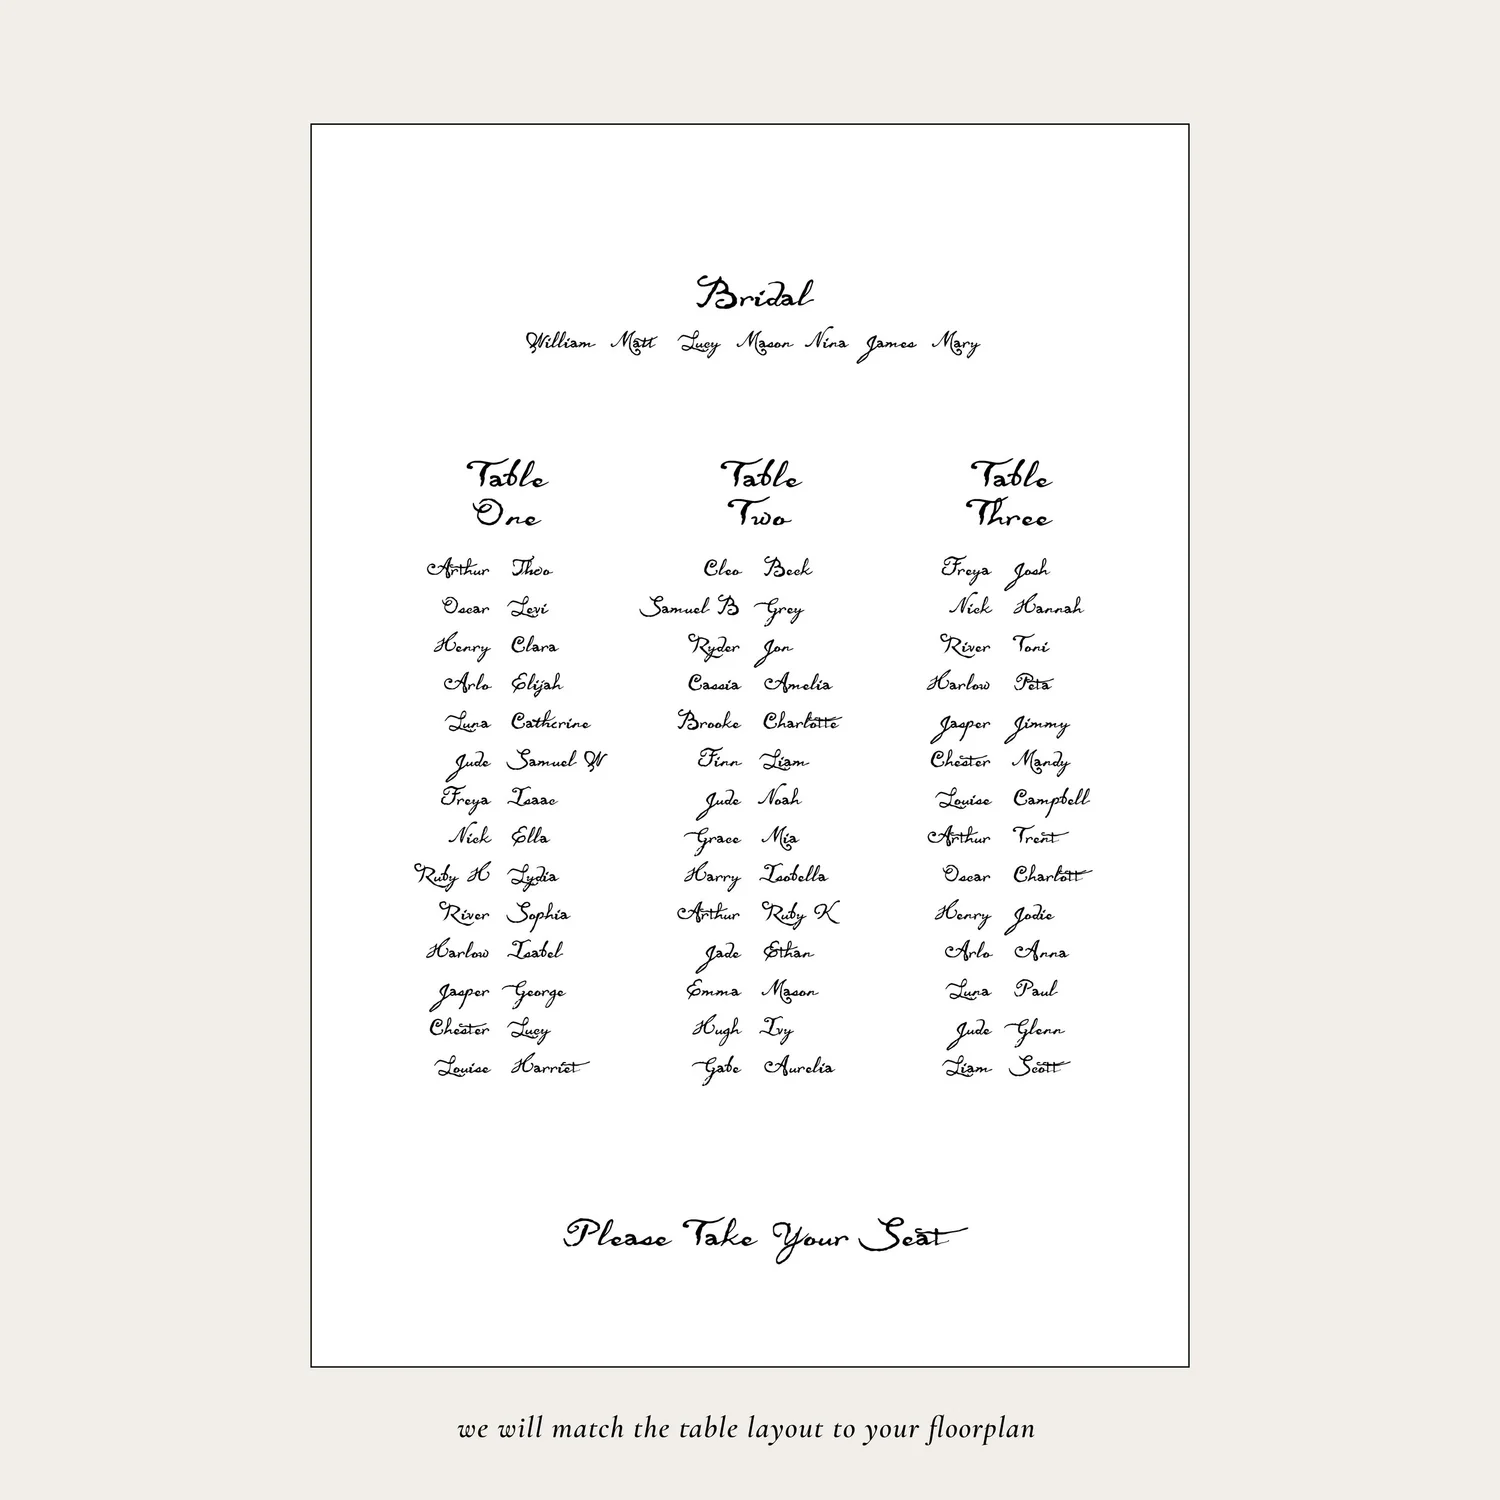 Bridal
William Matt Lucy Mason Nina James Mary
Table One
Arthur Theo
Oscar Levi
Henry Clara
Arlo Elijah
Luna Catherine
Jude Samuel W
Freya Isaac
Nick Ella
Ruby H Lydia
River Sophia
Harlow Isabel
Jasper George
Chester Lucy
Louise Harriet
Table Two
Cleo Beck
Samuel B Grey
Ryder Jon
Cassia Amelia
Brooke Charlotte
Finn Liam
Jude Noah
Grace Mia
Harry Isobella
Arthur Ruby K
Jade Ethan
Emma Mason
Hugh Ivy
Gabe Aurelia
Table Three
Freya Josh
Nick Hannah
River Toni
Harlow Peta
Jasper Jimmy
Chester Mandy
Louise Campbell
Arthur Trent
Oscar Charlott
Henry Jodie
Arlo Anna
Luna Paul
Jude Glenn
Liam Scott
Please Take Your Seat
we will match the table layout to your floorplan